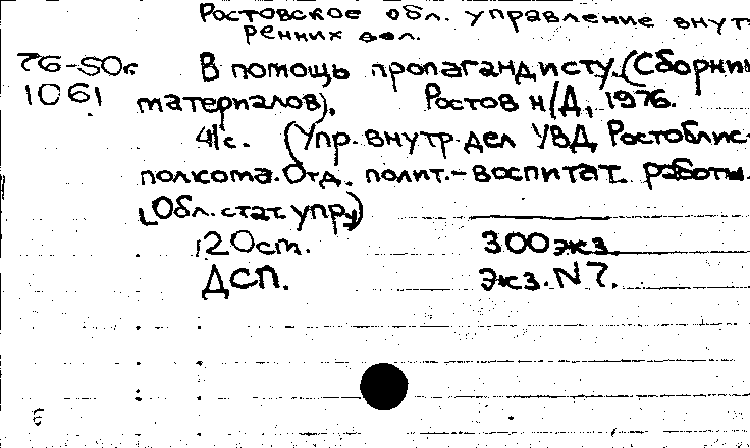 Ростовское обл. управление внут
ренних дел.
76-50г В помощь пропагандисту. (Сборник
1061 материалов). Ростов н/Д, 1976.
41с. (Упр. внутр. дел УВД Ростоблис
полкома. Отд. полит.-воспитат. работы.
(Обл. стат. упр.)
120 ст. 300 экз.
ДСП. Экз. N 7.